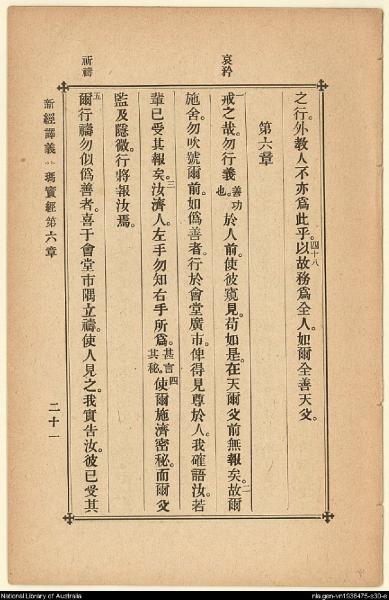 之行。外教人不亦爲此乎。四十八以故務爲全人。如爾全善天父。
第六章
哀矜
一戒之哉。勿行義善功也。於人前。使彼窺見。苟如是。在天爾父前無報矣。二故爾
施舍。勿吹號爾前。如僞善者。行於會堂廣市。俾得見尊於人。我確語汝。若
輩已受其報矣。三汝濟人。左手勿知右手所爲。甚言其秘。四使爾施濟密秘。而爾父
監及隱微。行將報汝焉。
祈禱
五爾行禱。勿似僞善者。喜于會堂市隅立禱。使人見之。我實告汝。彼已受其
新經譯義 瑪竇經第六章 二十一
National Library of Australia
nla.gen-vn1938475-s30-e